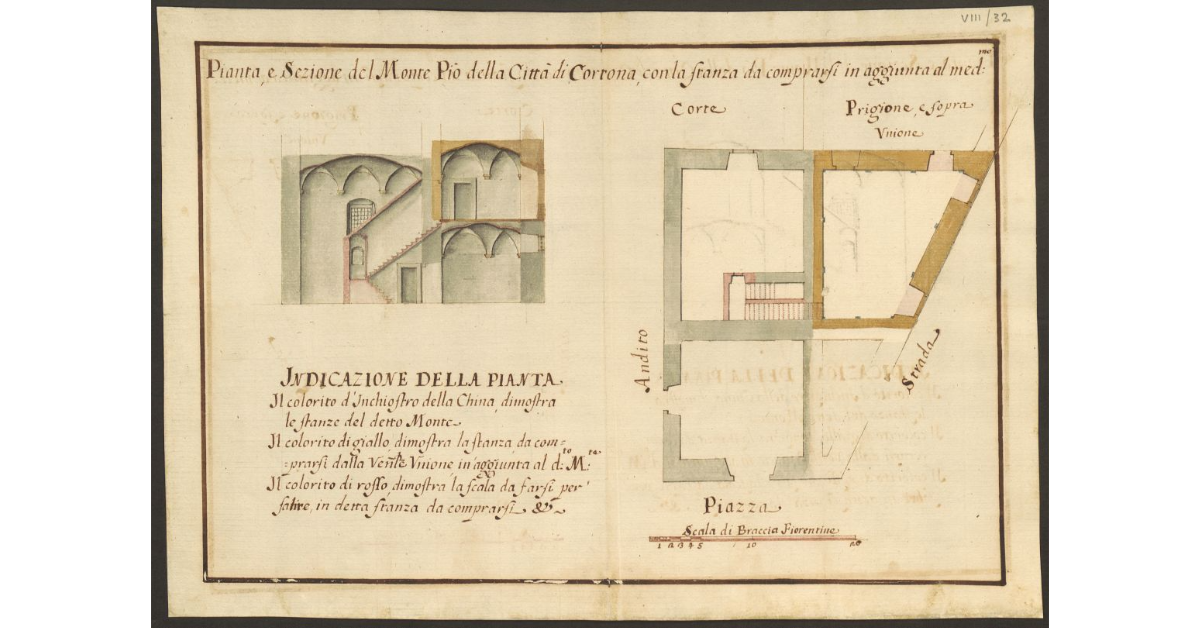 VIII/32
Pianta, e Sezione del Monte Pio della Città di Cortona, con la stanza da comprarsi in aggiunta al med:mo
Corte
Prigione, e sopra
Vnione
Andito
Strada
INDICAZIONE DELLA PIANTA
Il colorito d'Inchiostro della China, dimostra
le stanze del detto Monte
Il colorito di giallo, dimostra la stanza da com=
:prarsi dalla Vente Vnione in aggiunta al d:to M:te
Il colorito di rosso, dimostra la scala da farsi per
salire, in detta stanza da comprarsi &
Piazza
Scala di Braccia Fiorentine
1 2 3 4 5 10 20